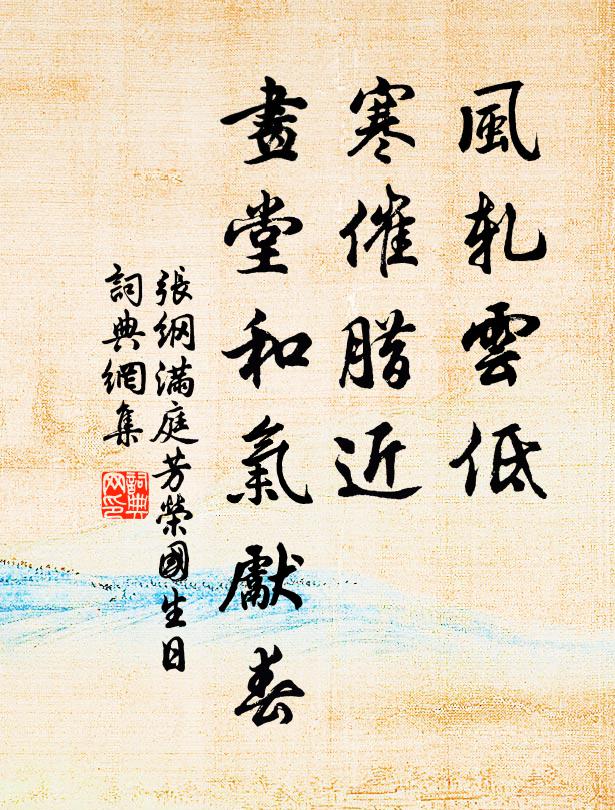 風軋雲低
寒催腊近
畫堂和氣獻春
張綱滿庭芳榮國生日
詞典網集
詞典网印